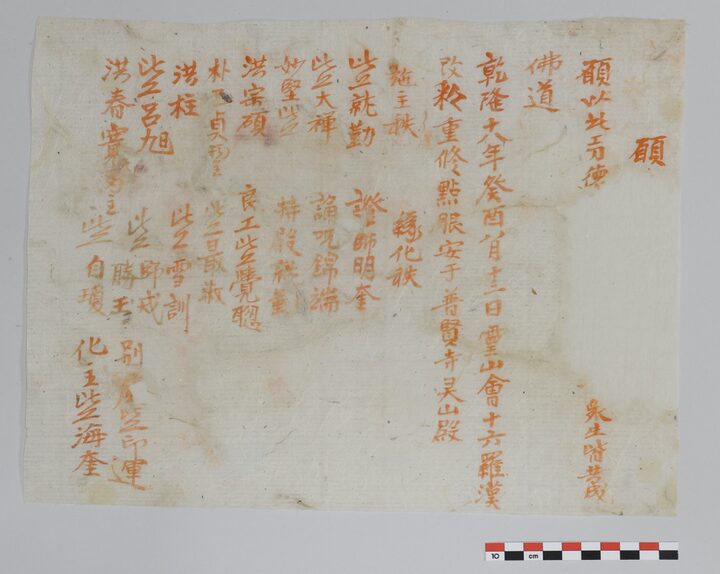 願
願以此功德
衆生皆共成
佛道
乾隆十八年癸酉八月十三日靈山會十六羅漢
改粉重修點眼安于普賢寺灵山殿
施主秩
緣化秩
比丘就勤
證師明奎
比丘大禪
誦呪錦端
妙堅比丘
持殿
洪宗碩
良工比丘覺聰
朴 貞
比丘最淑
洪柱
比丘雪訓
比丘呂旭
比丘
勝玉
別座比丘印運
洪春
比丘
自瓊
化主比丘海奎